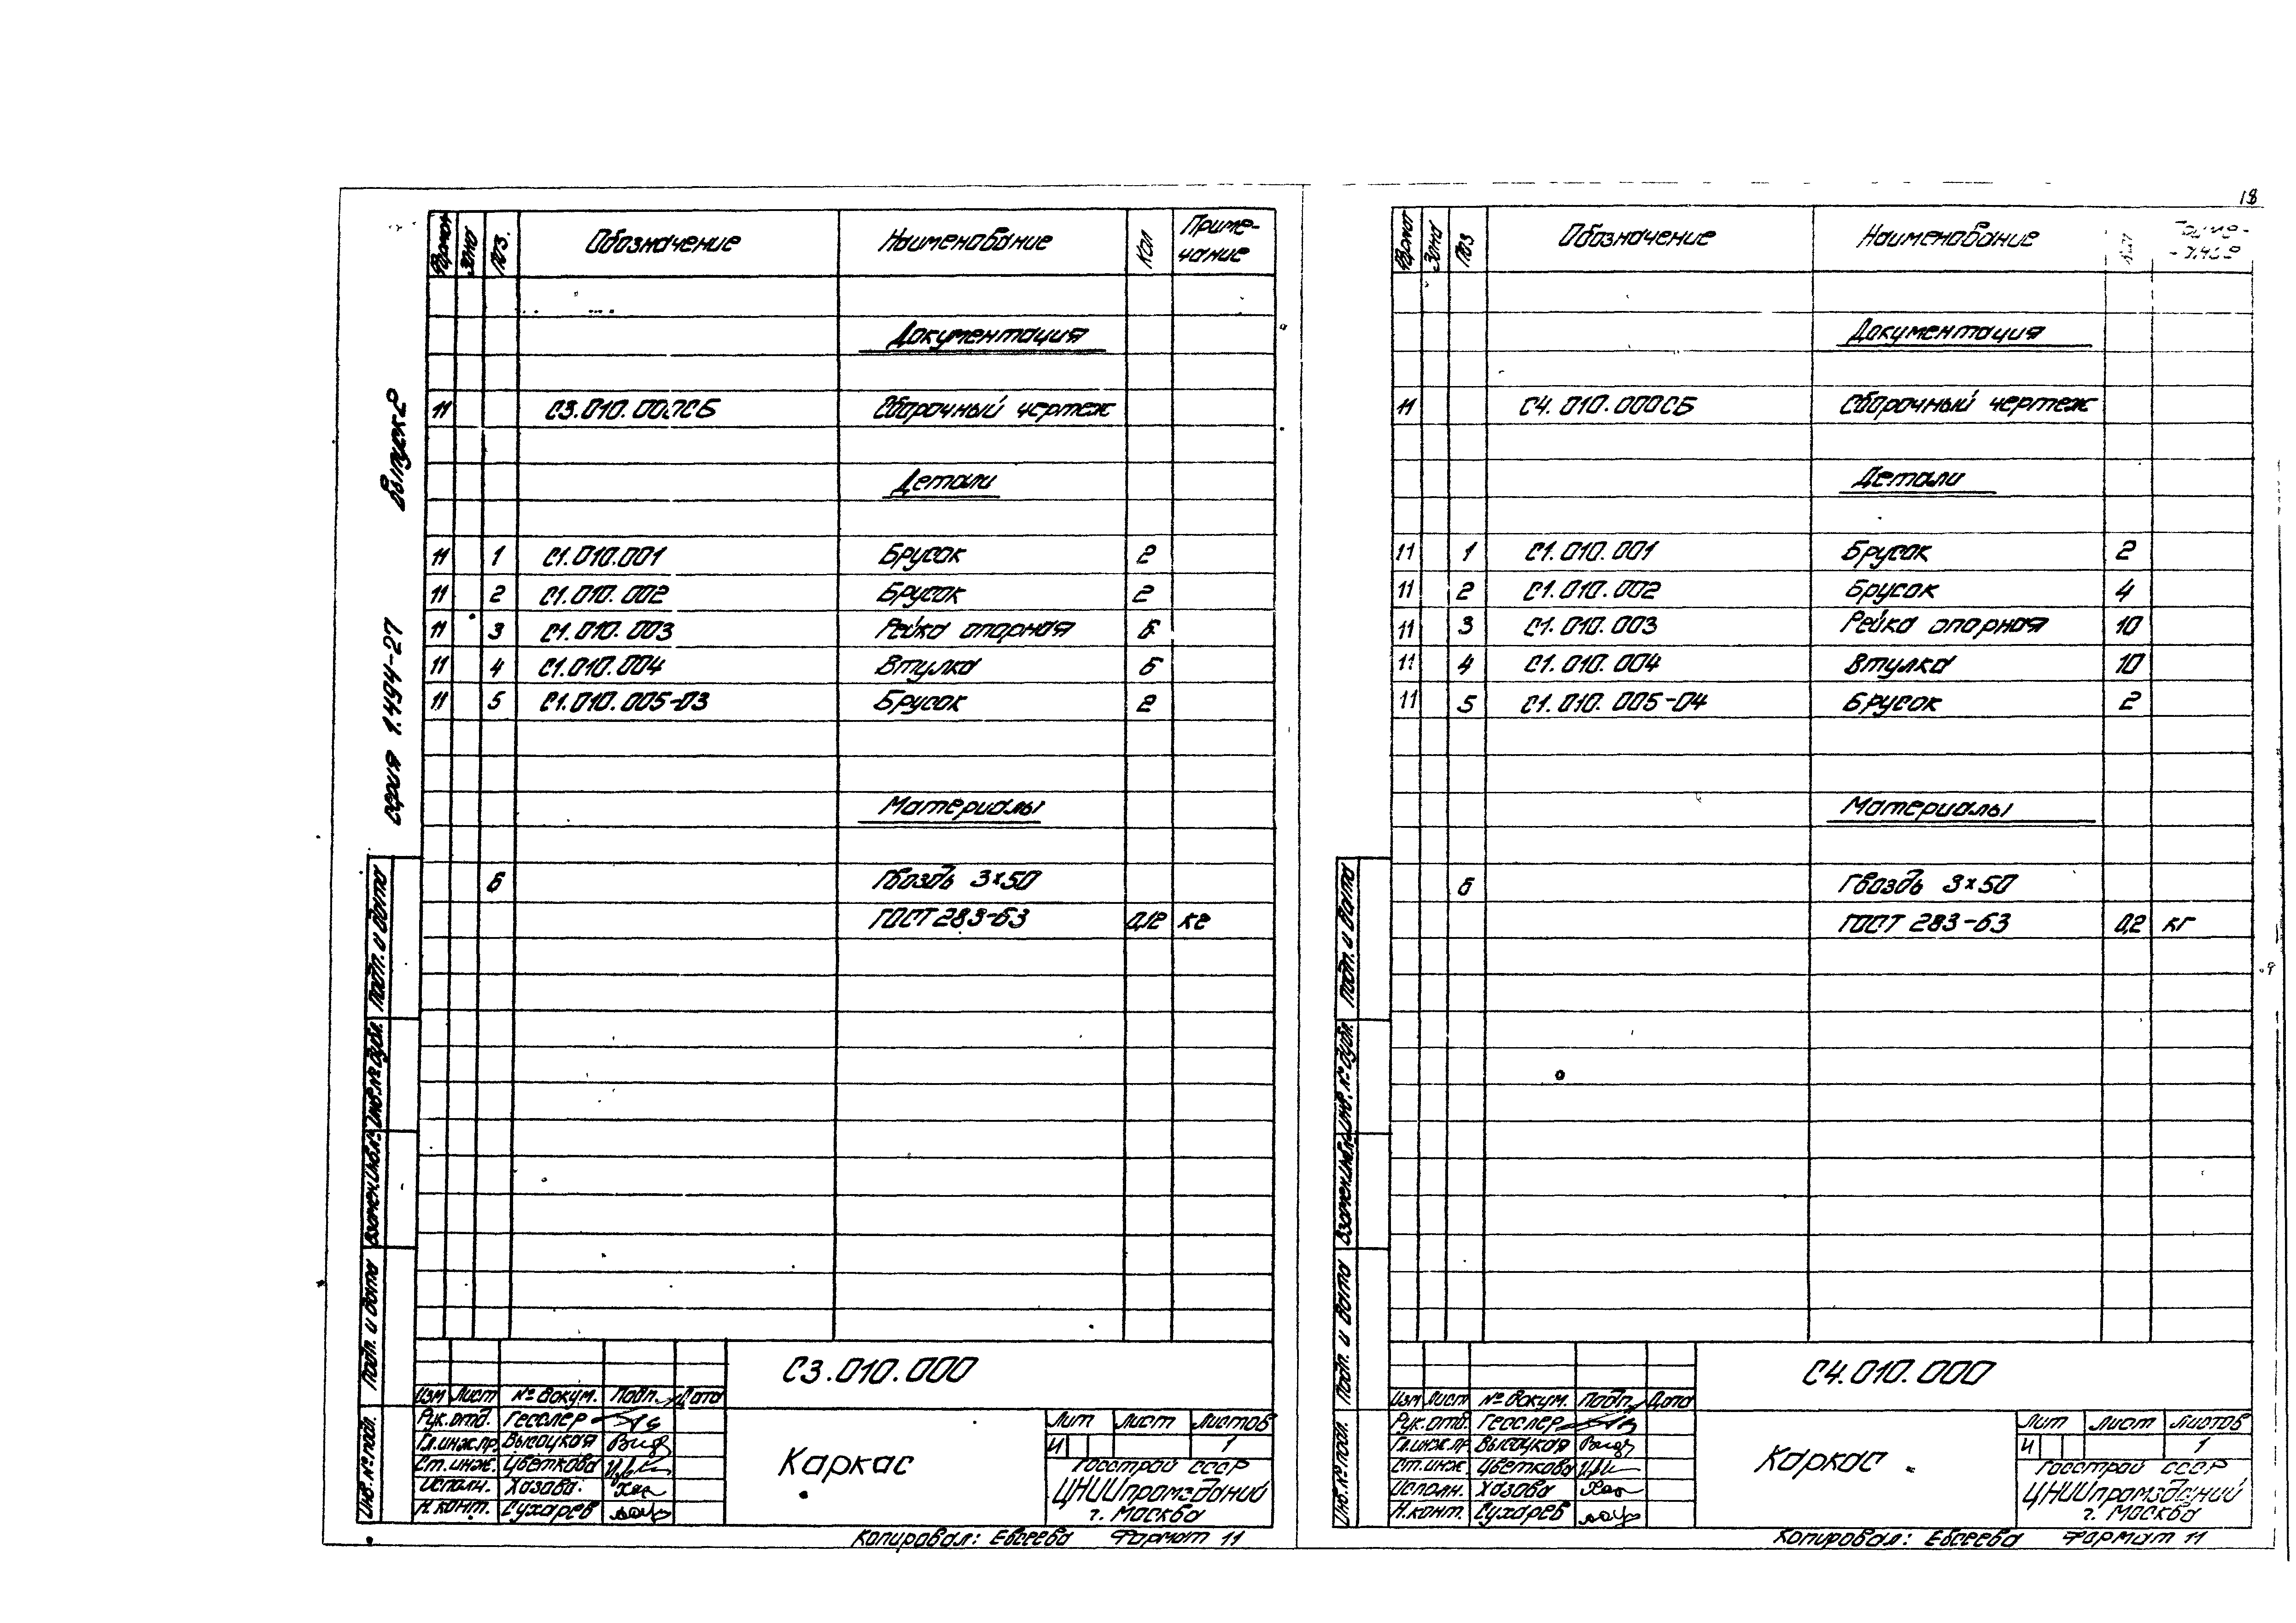 18
серия 1.494-27
Выпуск-2
Формат Зона Поз. Обозначение Наименование Кол Приме-
чание
Документация
11 С3.010.000СБ Сборочный чертеж
Детали
11 1 С1.010.001 Брусок 2
11 2 С1.010.002 Брусок 2
11 3 С1.010.003 Рейка опорная 6
11 4 С1.010.004 Втулка 6
11 5 С1.010.005-03 Брусок 2
Материалы
6 Гвоздь 3×50
ГОСТ 283-63 0,12 кг
Подп. и дата
Инв.№ дубл.
Взамен.инв.№
Подп. и дата
Инв.№ подл.
С3.010.000
Изм Лист № докум. Подп. Дата
Рук.отд. Гесслер
Гл.инж.пр. Высоцкая
Ст.инж. Цветкова
Исполн. Хазова
Н.конт. Сухарев
Каркас
Лит Лист Листов
И 1
Госстрой СССР
ЦНИИпромзданий
г. Москва
Копировал: Евсеева Формат 11
Формат Зона Поз Обозначение Наименование Кол Приме-
чание
Документация
11 С4.010.000СБ Сборочный чертеж
Детали
11 1 С1.010.001 Брусок 2
11 2 С1.010.002 Брусок 4
11 3 С1.010.003 Рейка опорная 10
11 4 С1.010.004 Втулка 10
11 5 С1.010.005-04 Брусок 2
Материалы
6 Гвоздь 3×50
ГОСТ 283-63 0,2 кг
Подп. и дата
Инв.№ дубл.
Взамен.инв.№
Подп. и дата
Инв.№ подл.
С4.010.000
Изм Лист № докум. Подп. Дата
Рук.отд. Гесслер
Гл.инж.пр. Высоцкая
Ст.инж. Цветкова
Исполн. Хазова
Н.конт. Сухарев
Каркас
Лит Лист Листов
И 1
Госстрой СССР
ЦНИИпромзданий
г. Москва
Копировал: Евсеева Формат 11